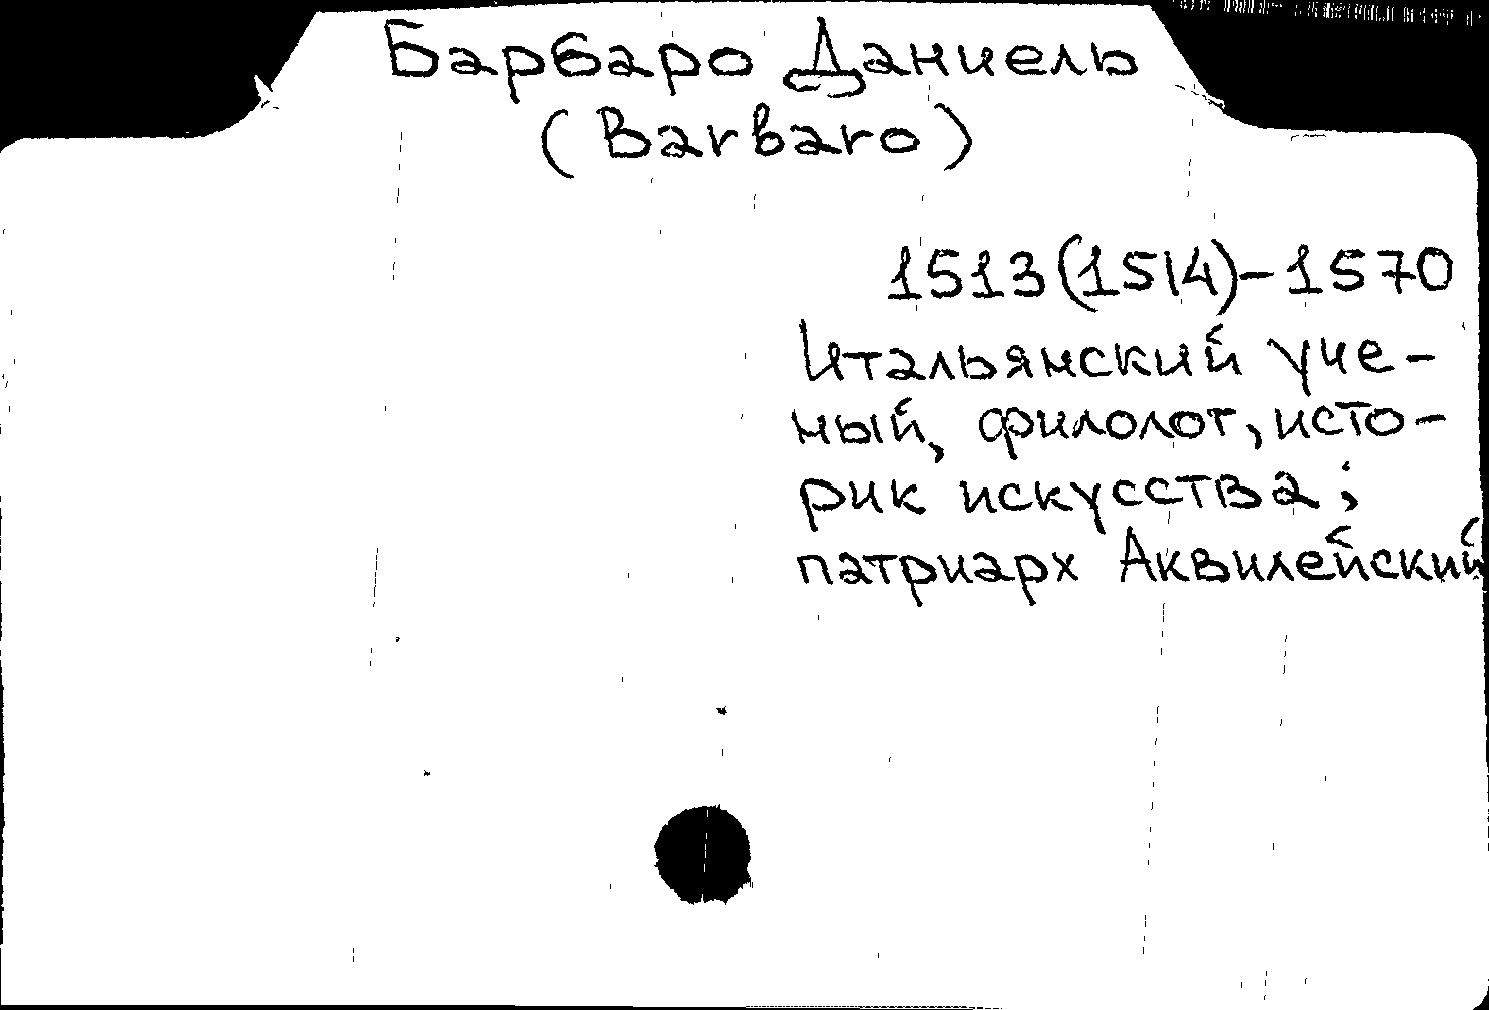 Барбаро Даниель
(Barbaro)
1513(1514)-1570
Итальянский уче-
ный, филолог, исто-
рик искусства;
патриарх Аквилейский